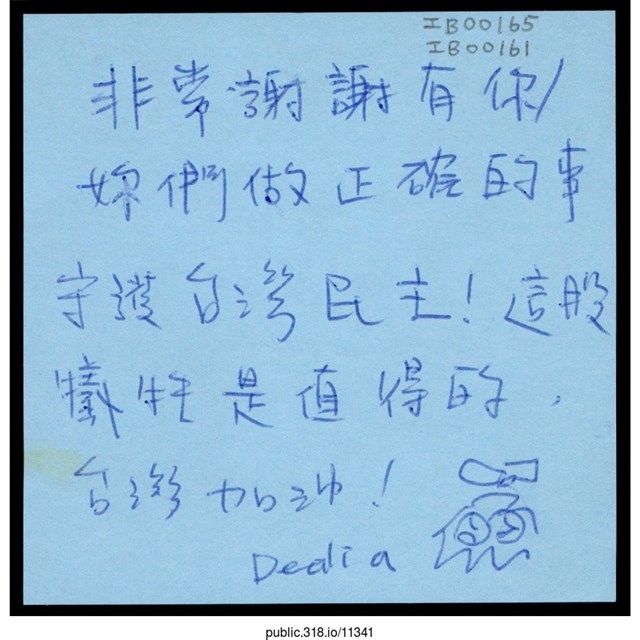 IB00165
IB00161
非常謝謝有你/
妳們做正確的事
守護台灣民主！這股
犧牲是值得的．
台灣加油！
Dedia
public.318.io/11341